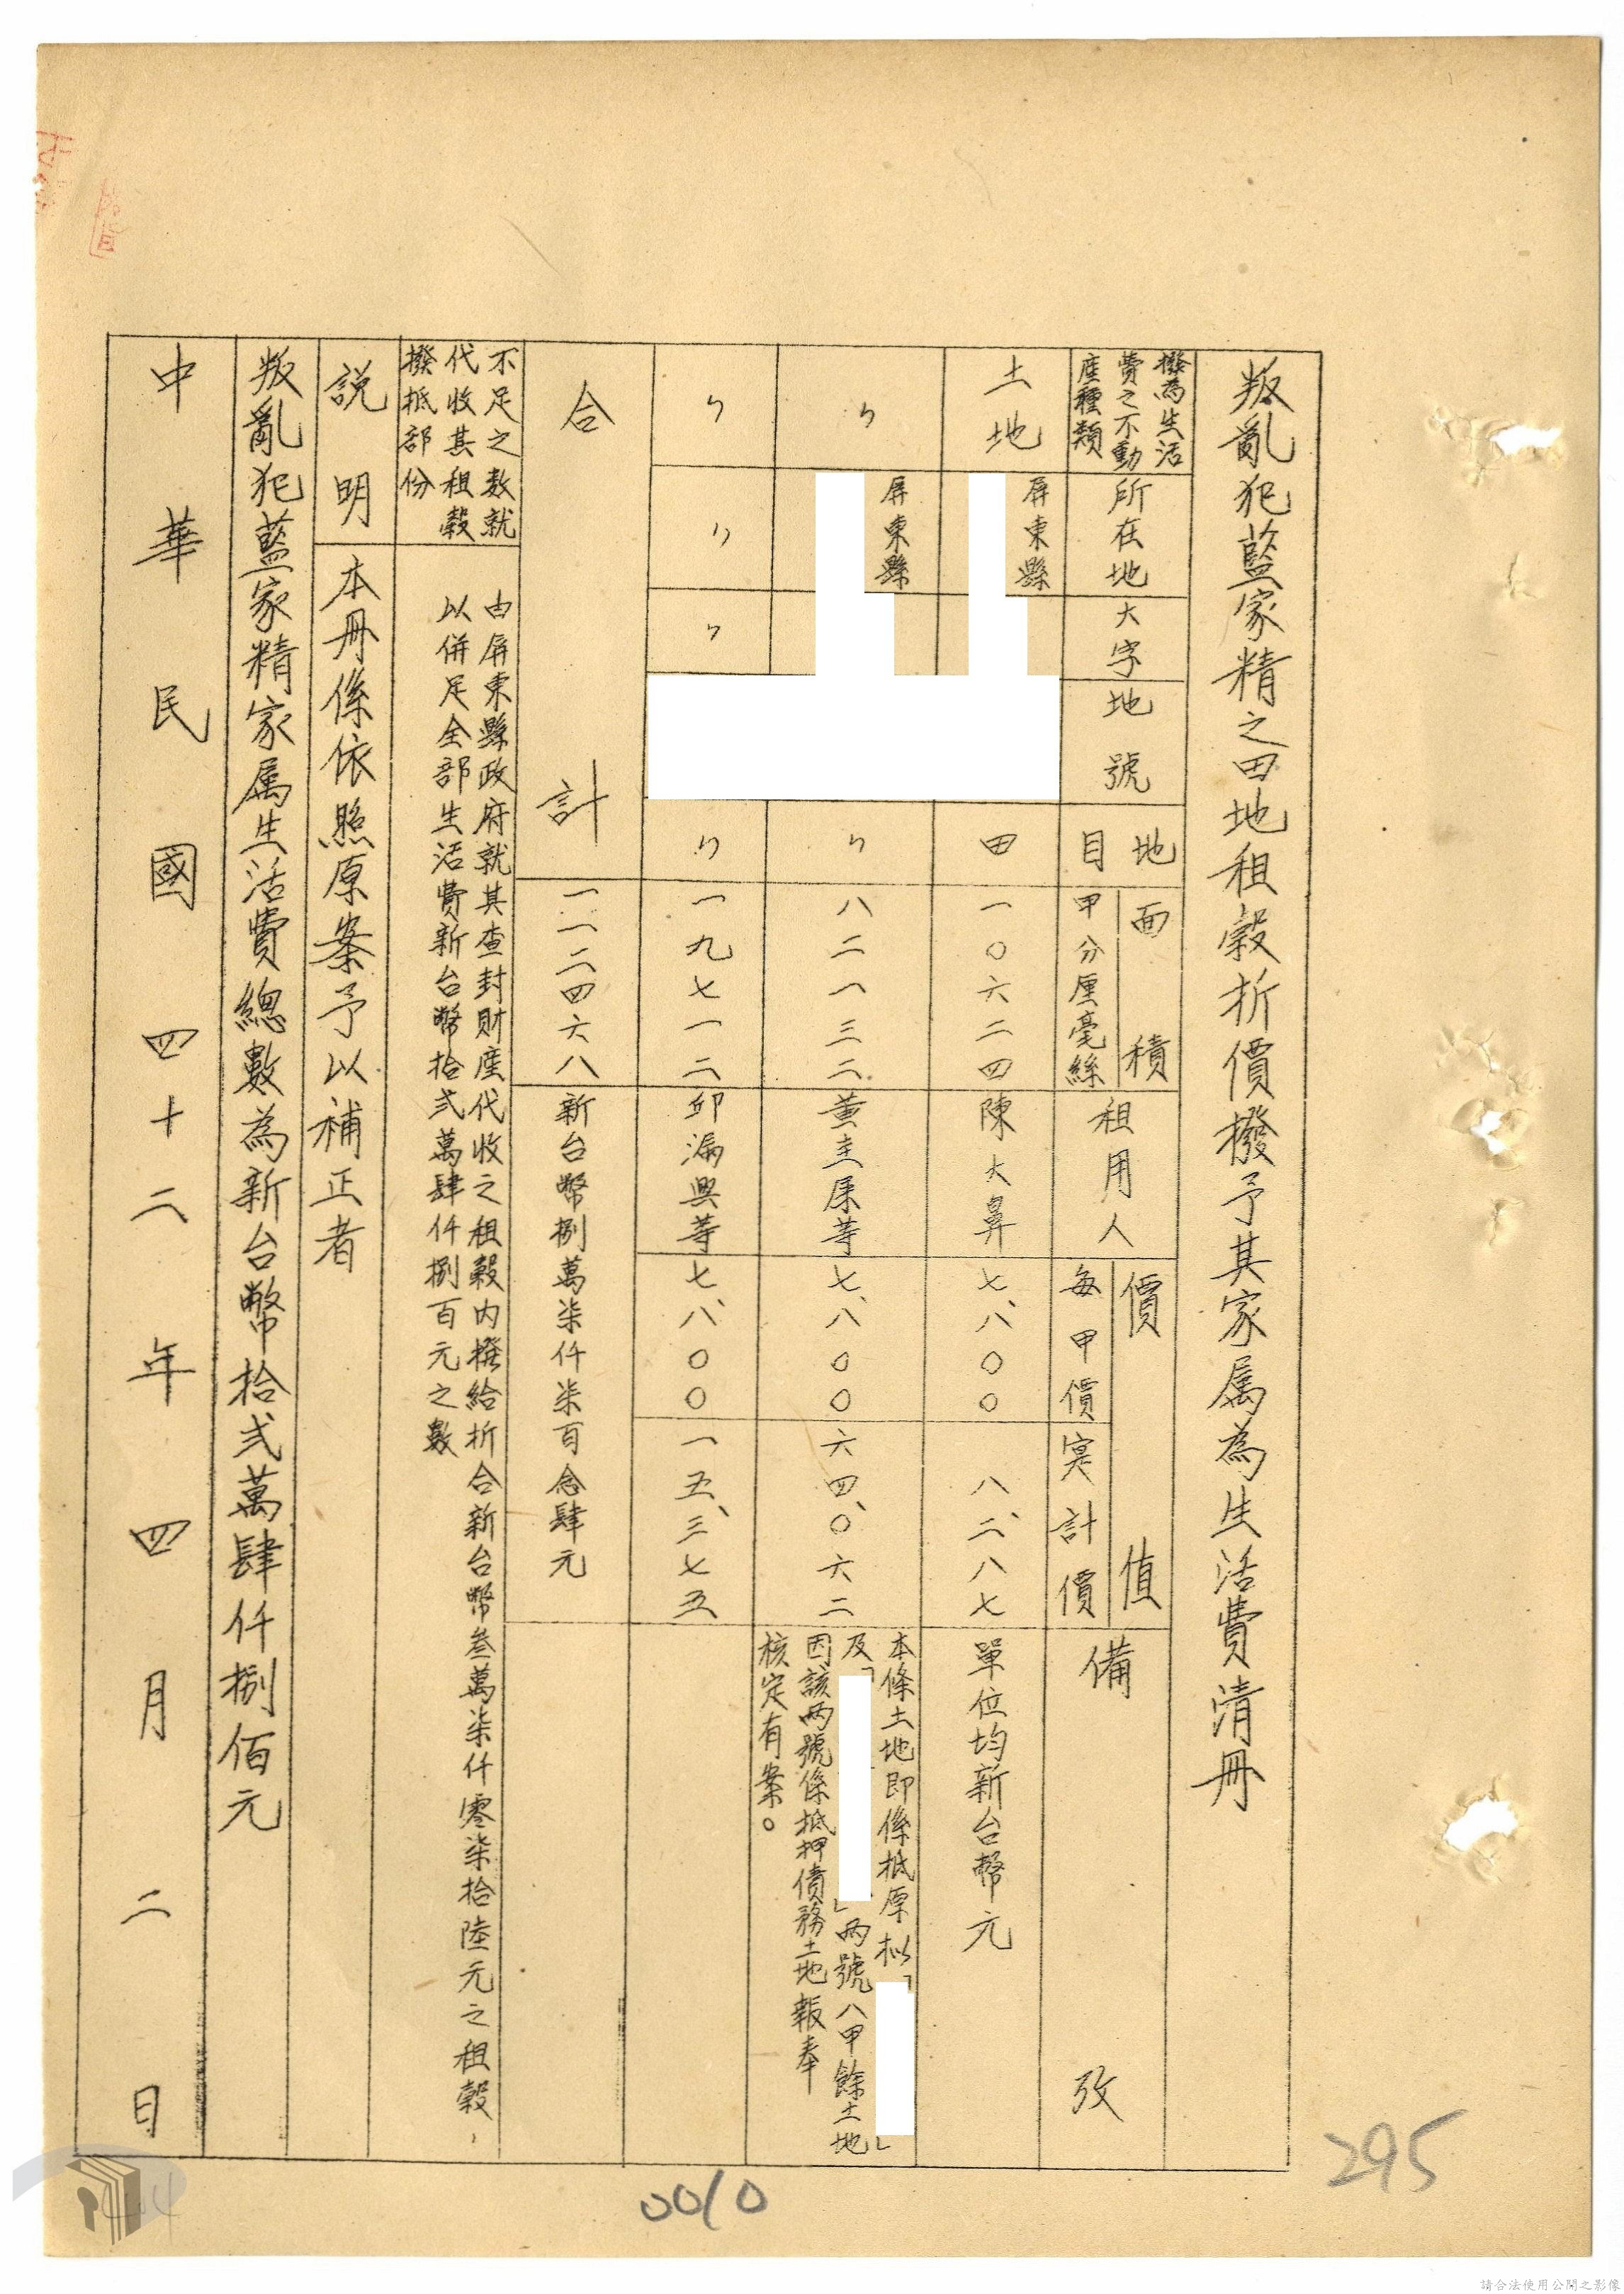 叛亂犯藍家精之田地租穀折價撥予其家属為生活費清冊
撥為生活
費之不動
産種類
所在地
大字
地號
地目
面積
甲分厘毫絲
租用人
價值
每甲價
寔計價
備攷
土地
屏東縣
田
一〇六二四
陳大鼻
七、八〇〇
八二、八七
單位均新台幣元
〃
屏東縣
〃
八二一三二
董圭屘等
七、八〇〇
六四、〇六二
本條土地即係抵原拟「」
及「」兩號八甲餘土地
因該兩號係抵押債務土地報奉
核定有案。
〃
〃
〃
〃
一九七一二
邱漏興等
七、八〇〇
一五、三七五
合計
一一二四六八
新台幣捌萬柒仟柒百念肆元
不足之数就
代收其租穀
撥抵部份
由屏東縣政府就其查封財産代收之租穀内撥給折合新台幣叁萬柒仟零柒拾陸元之租穀、
以併足全部生活費新台幣拾弍萬肆仟捌百元之數
説明
本冊係依照原案予以補正者
叛亂犯藍家精家属生活費總數為新台幣拾弍萬肆仟捌佰元
中華民國四十二年四月二日
295
0010
請合法使用公開之影像